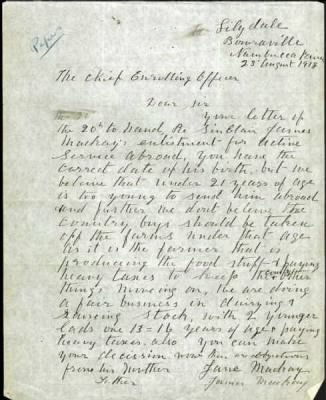 Lilydale
Bowraville
Nambucca River
23 August 1918
The Chief Enrolling Officer
Dear Sir
Your letter of
the 20th to hand, Re Sinclair James
Mackay's enlistment for Active
Service Abroad, You have the
correct date of his birth, but we
beleive that under 21 years of age
is too young to send him abroad
and further we don't beleive the
Country boys should be taken
off the farms under that age
as it is the farmer that is
producing the food stuff & paying
heavy taxes to keep the other
things moveing on, We are doing
a fair business in dairying &
raiseing Stock, with 2 younger
lads one 13 = 16 years of age & paying
heavy taxes also You can make
your decission now this is objections
from his Mother Jane Mackay
Father James Mackay